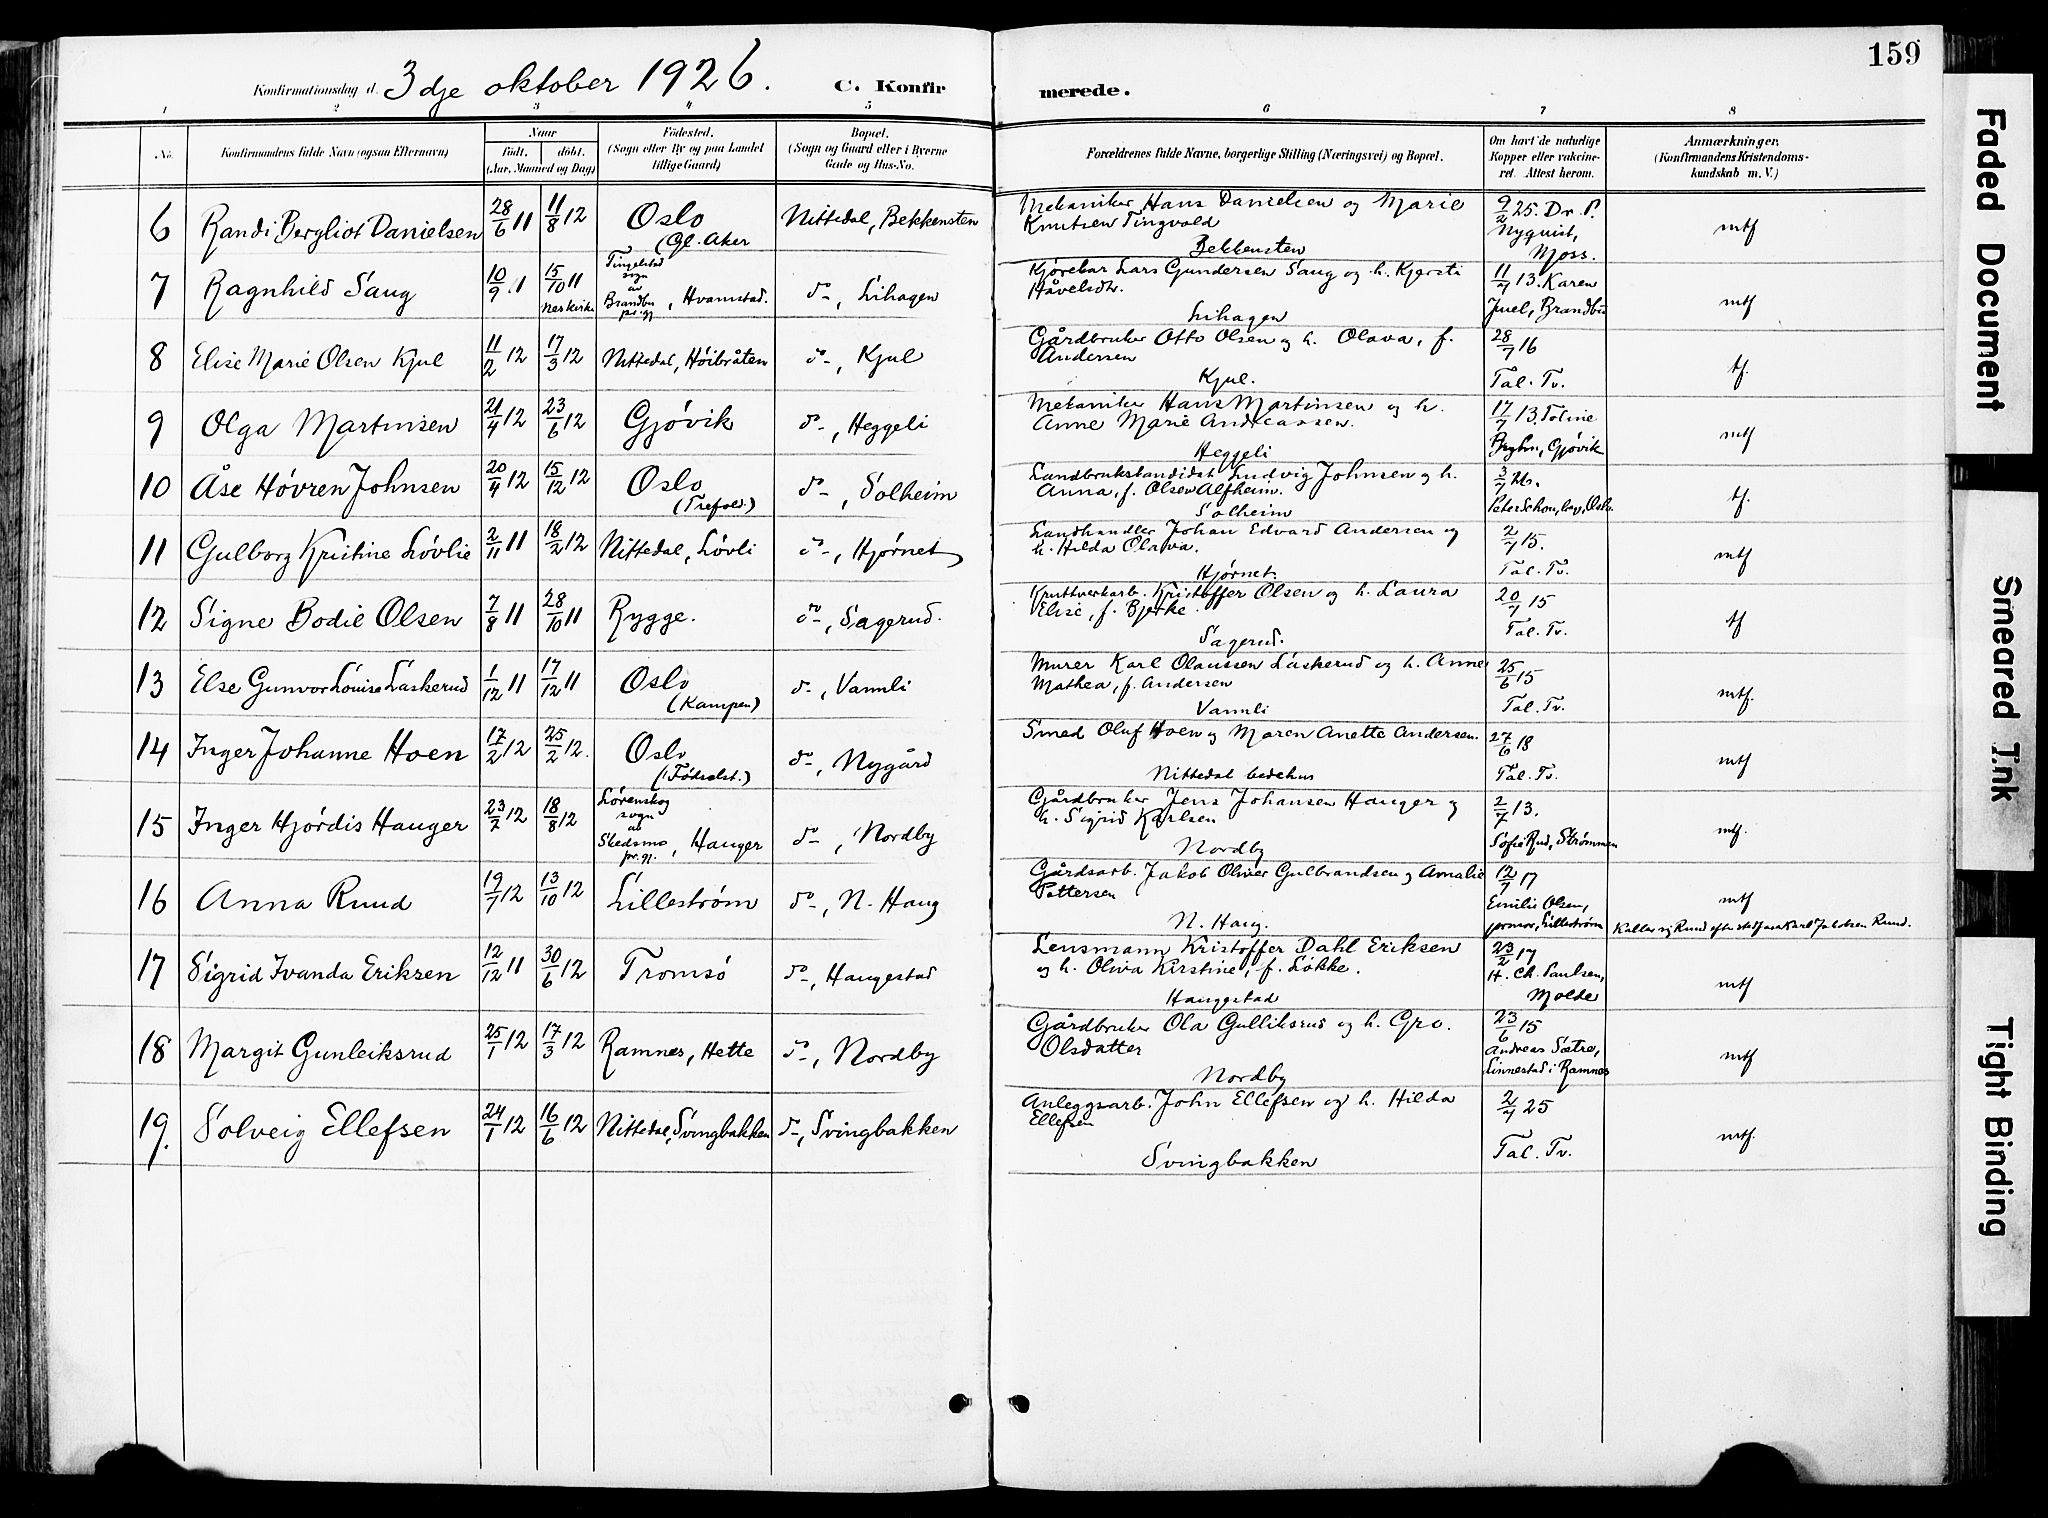 159
Konfirmationsdag d. 3dje oktober 1926. C. Konfirmerede.
1 2 3 4 5 6 7 8
No. Konfirmandens fulde Navn (ogsaa Efternavn) Naar født. døbt. (Aar, Maaned og Dag) Fødested. (Sogn eller By og paa Landet tillige Gaard) Bopæl. (Sogn og Gaard eller i Byerne Gade og Hus-No. Forældrenes fulde Navne, borgerlige Stilling (Næringsvei) og Bopæl. Om havt de naturlige Kopper eller vakcineret. Attest herom. Anmærkninger. (Konfirmandens Kristendomskundskab m. V.)
6 Randi Bergliot Danielsen 28/6 11 11/8 12 Oslo (Gl. Aker Nittedal, Bekkensten Mekaniker Hans Danielsen og Marie Knutsen Tingvold Bekkensten 9/2 25. Dr. P. Nyquist, Moss. mtf
7 Ragnhild Saug 10/9 11 15/10 11 Neskirke Tingelstad sogn av Brandbu pr.gj., Hvamstad. do-, Lihagen Kjørekar Lars Gundersen Saug og h. Kjersti Håvelsdtr. Lihagen 11/7 13. Karen Juel, Brandbu mtf
8 Elise Marie Olsen Kjul 11/2 12 17/3 12 Nittedal, Høibråten do-, Kjul Gårdbruker Otto Olsen og h. Olava, f. Andersen Kjul. 28/7 16 Tal. Tv. tf.
9 Olga Martinsen 21/4 12 23/6 12 Gjøvik do-, Heggeli Mekaniker Hans Martinsen og h. Anne Marie Andreassen. Heggeli 17/7 13. Toline Gjøvik mtf
10 Åse Høvren Johnsen 20/4 12 15/12 12 Oslo (Trefold.) do-, Solheim Landbrukskandidat Ludvig Johnsen og h. Anna, f. Olsen Alfheim. Solheim 3/7 Peter Schou, Oslo. tf.
11 Gulborg Kristine Løvlie 2/11 11 18/2 12 Nittedal, Løvli do-, Hjørnet Landhandler Johan Edvard Andersen og h. Hilda Olava. Hjørnet. 2/7 15. Tal. Tv. mtf
12 Signe Bodil Olsen 7/8 11 28/10 11 Rygge. do-, Sagerud. Kruttverkarb. Kristoffer Olsen og h. Laura Elise, f. Bjerke. Sagerud. 20/7 15 Tal. Tv. tf
13 Else Gunvor Louise Laskerud 1/12 11 17/12 11 Oslo (Kampen) do-, Vannli Murer Karl Olaussen Laskerud og h. Anne Mathea, f. Andersen Vannli 25/6 15 Tal. Tv. mtf.
14 Inger Johanne Hoen 17/2 12 25/2 12. Oslo (Fødselst.) do-, Nygård Smed Oluf Hoen og Maren Anette Andersen. Nittedal bedehus 27/6 18 Tal. Tv. mtf
15 Inger Hjørdis Hauger 23/7 12 18/8 12 Lørenskog sogn av Skedsmo pr.gj., Hauger do-, Nordby Gårdbruker Jens Johansen Hauger og h. Sigrid Karlsen Nordby 2/7 13. Sofie Rud, Strømmen mtf.
16 Anna Ruud 19/7 12 13/10 12 Lillestrøm do-, N. Haug Gårdsarb. Jakob Oliver Gulbrandsen og Amalie Pettersen N. Haug. 12/7 17 Emilie Olsen, jormor, Lillestrøm mtf Kaller sig Ruud efter stedfaren Karl Jakobsen Ruud.
17 Sigrid Ivanda Eriksen 12/12 11 30/6 12 Tromsø do-, Haugestad Lensmann Kristoffer Dahl Eriksen og h. Oliva Kirstine, f. Løkke. Haugestad 23/2 17 H. Ch. Paulsen, Molde mtf
18 Margit Gunleiksrud 25/1 12 17/3 12 Ramnes, Hette do-, Nordby Gårdbruker Ola Gulliksrud og h. Gro. Olsdatter Nordby 23/6 15 Andreas Sætre, Linnestad i Ramnes mtf
19. Solveig Ellefsen 24/1 12 16/6 12 Nittedal, Svingbakken do-, Svingbakken Anleggsarb. John Ellefsen og h. Hilda Ellefsen Svingbakken 2/7 25 Tal. Tv. mtf.
Faded Document
Smeared Ink
Tight Binding